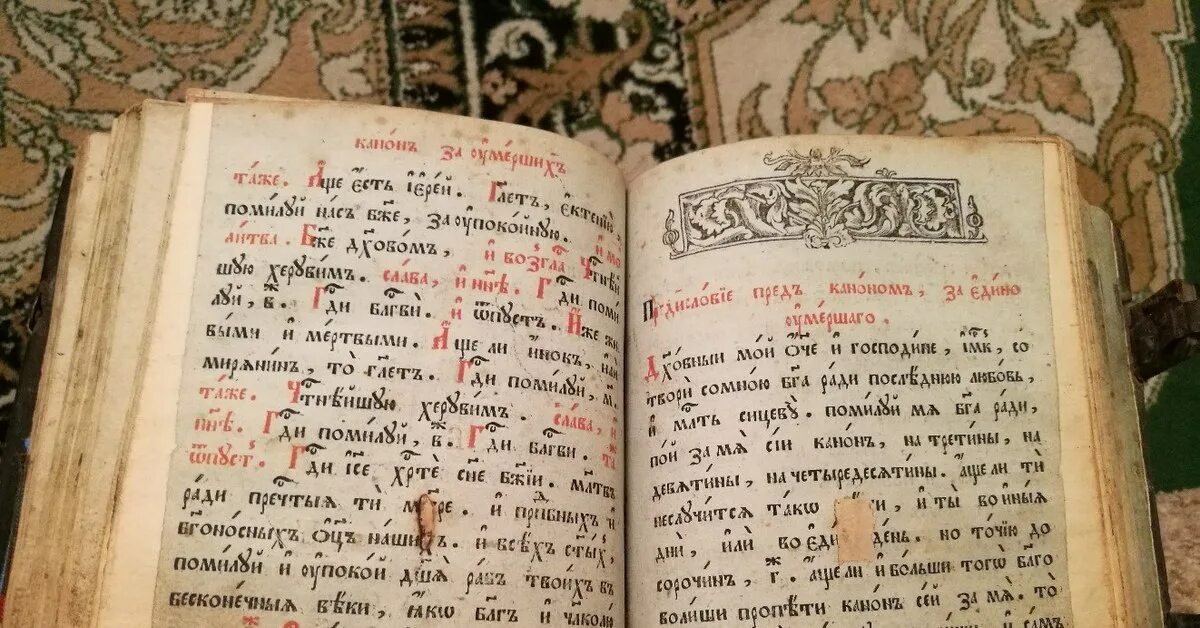 Канѡ́нъ за ᲂу҆ме́ршихъ
та́же. А҆́ще є҆́сть і҆ере́й. Гл҃етъ, є҆ктенїю̀,
поми́лꙋй на́съ бж҃е, за ᲂу҆поко́йнꙋю.
И҆ мо
ли́тва. Бж҃е дх҃ово́мъ, и҆ возгла́
Чтⷭ҇нѣ́й
шꙋю херꙋви́мъ. сла́ва, и҆ ны́нѣ. Гдⷭ҇и поми́
лꙋй, в҃ж. Гдⷭ҇и блгⷭ҇вѝ. и҆ ѿпꙋ́стъ. И҆́же жи
вы́ми и҆ ме́ртвыми. А҆́ще ли и҆́нокъ, и҆лѝ
мирѧни́нъ, то̀ гл҃етъ. Гдⷭ҇и поми́лꙋй,
та́же. Чтⷭ҇нѣ́йшꙋю херꙋви́мъ. сла́ва, и҆
ны́нѣ. Гдⷭ҇и поми́лꙋй, в҃ж. Гдⷭ҇и блгⷭ҇вѝ.
ѿпꙋ́стъ. Гдⷭ҇и і҆с҃е хрⷭ҇тѐ сн҃е бж҃їи. мл҃твъ
ра́ди пречⷭ҇тыѧ тѝ и҆ прпⷣбныхъ и҆
бг҃оно́сныхъ ѻ҆ц҃ъ на́шихъ. и҆ всѣ́хъ ст҃ы́хъ,
поми́лꙋй и҆ ᲂу҆поко́й дш҃а ра́бъ твои́хъ въ
безконе́чныѧ вѣ́ки, ꙗ҆́кѡ бл҃гъ и҆ чл҃колю
Предисло́вїе предъ кано́номъ, за є҆ди́но
ᲂу҆ме́ршаго.
Дх҃о́вныи мо́й ѻ҆́ч҃е и҆ господи́не, и҆́мⷬ҇къ, со
творѝ со мно́ю бг҃а ра́ди послѣ́днюю любо́вь,
и҆ млⷭ҇ть сицевꙋ̀. поми́лꙋй мѧ̀ бг҃а ра́ди,
по́й за мѧ̀ сі́и кано́нъ, на трети́ны, на
девѧти́ны, на четыредесѧти́ны. а҆́ще ли тѝ
неслꙋчи́тсѧ та́кѡ и҆ ты̀ во и҆ны́ѧ
дни̑, и҆лѝ во є҆ди́ де́нь. но то́чїю до
сорочи́нъ, г҃ж. а҆́ще ли и҆ бо́льши тогѡ̀ бл҃го
во́лиши пропѣ́ти кано́нъ се́й за мѧ̀. то̀